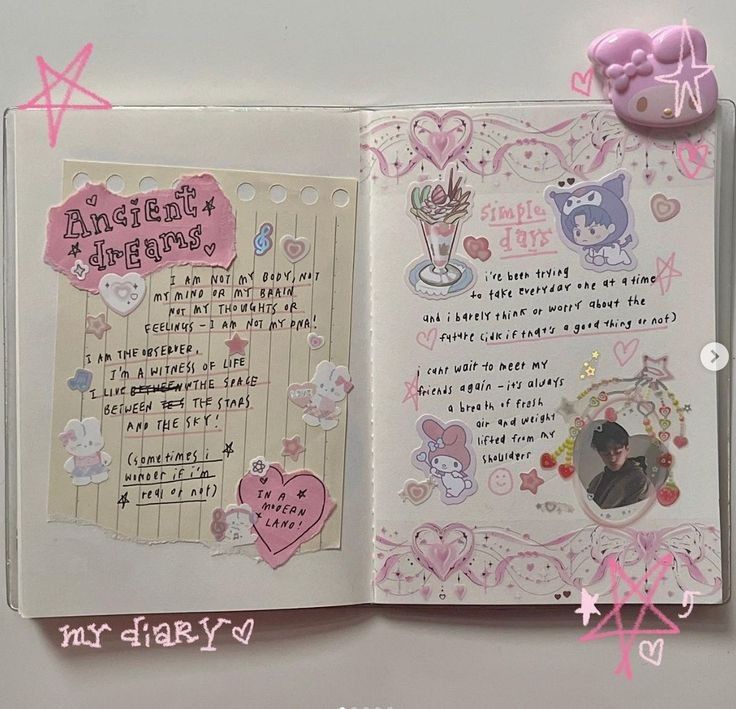 Ancient
dreams
I AM NOT MY BODY, NOT
MY MIND OR MY BRAIN
NOT MY THOUGHTS OR
FEELINGS - I AM NOT MY DNA!
I AM THE OBSERVER,
I'M A WITNESS OF LIFE
I LIVE BETWEEN IN THE SPACE
BETWEEN THE STARS
AND THE SKY!
(sometimes i
wonder if i'm
real or not)
IN A
MODERN
LAND!
simple
days
i've been trying
to take everyday one at a time
and i barely think or worry about the
future (idk if that's a good thing or not)
i cant wait to meet my
friends again - it's always
a breath of fresh
air and weight
lifted from my
shoulders
my diary